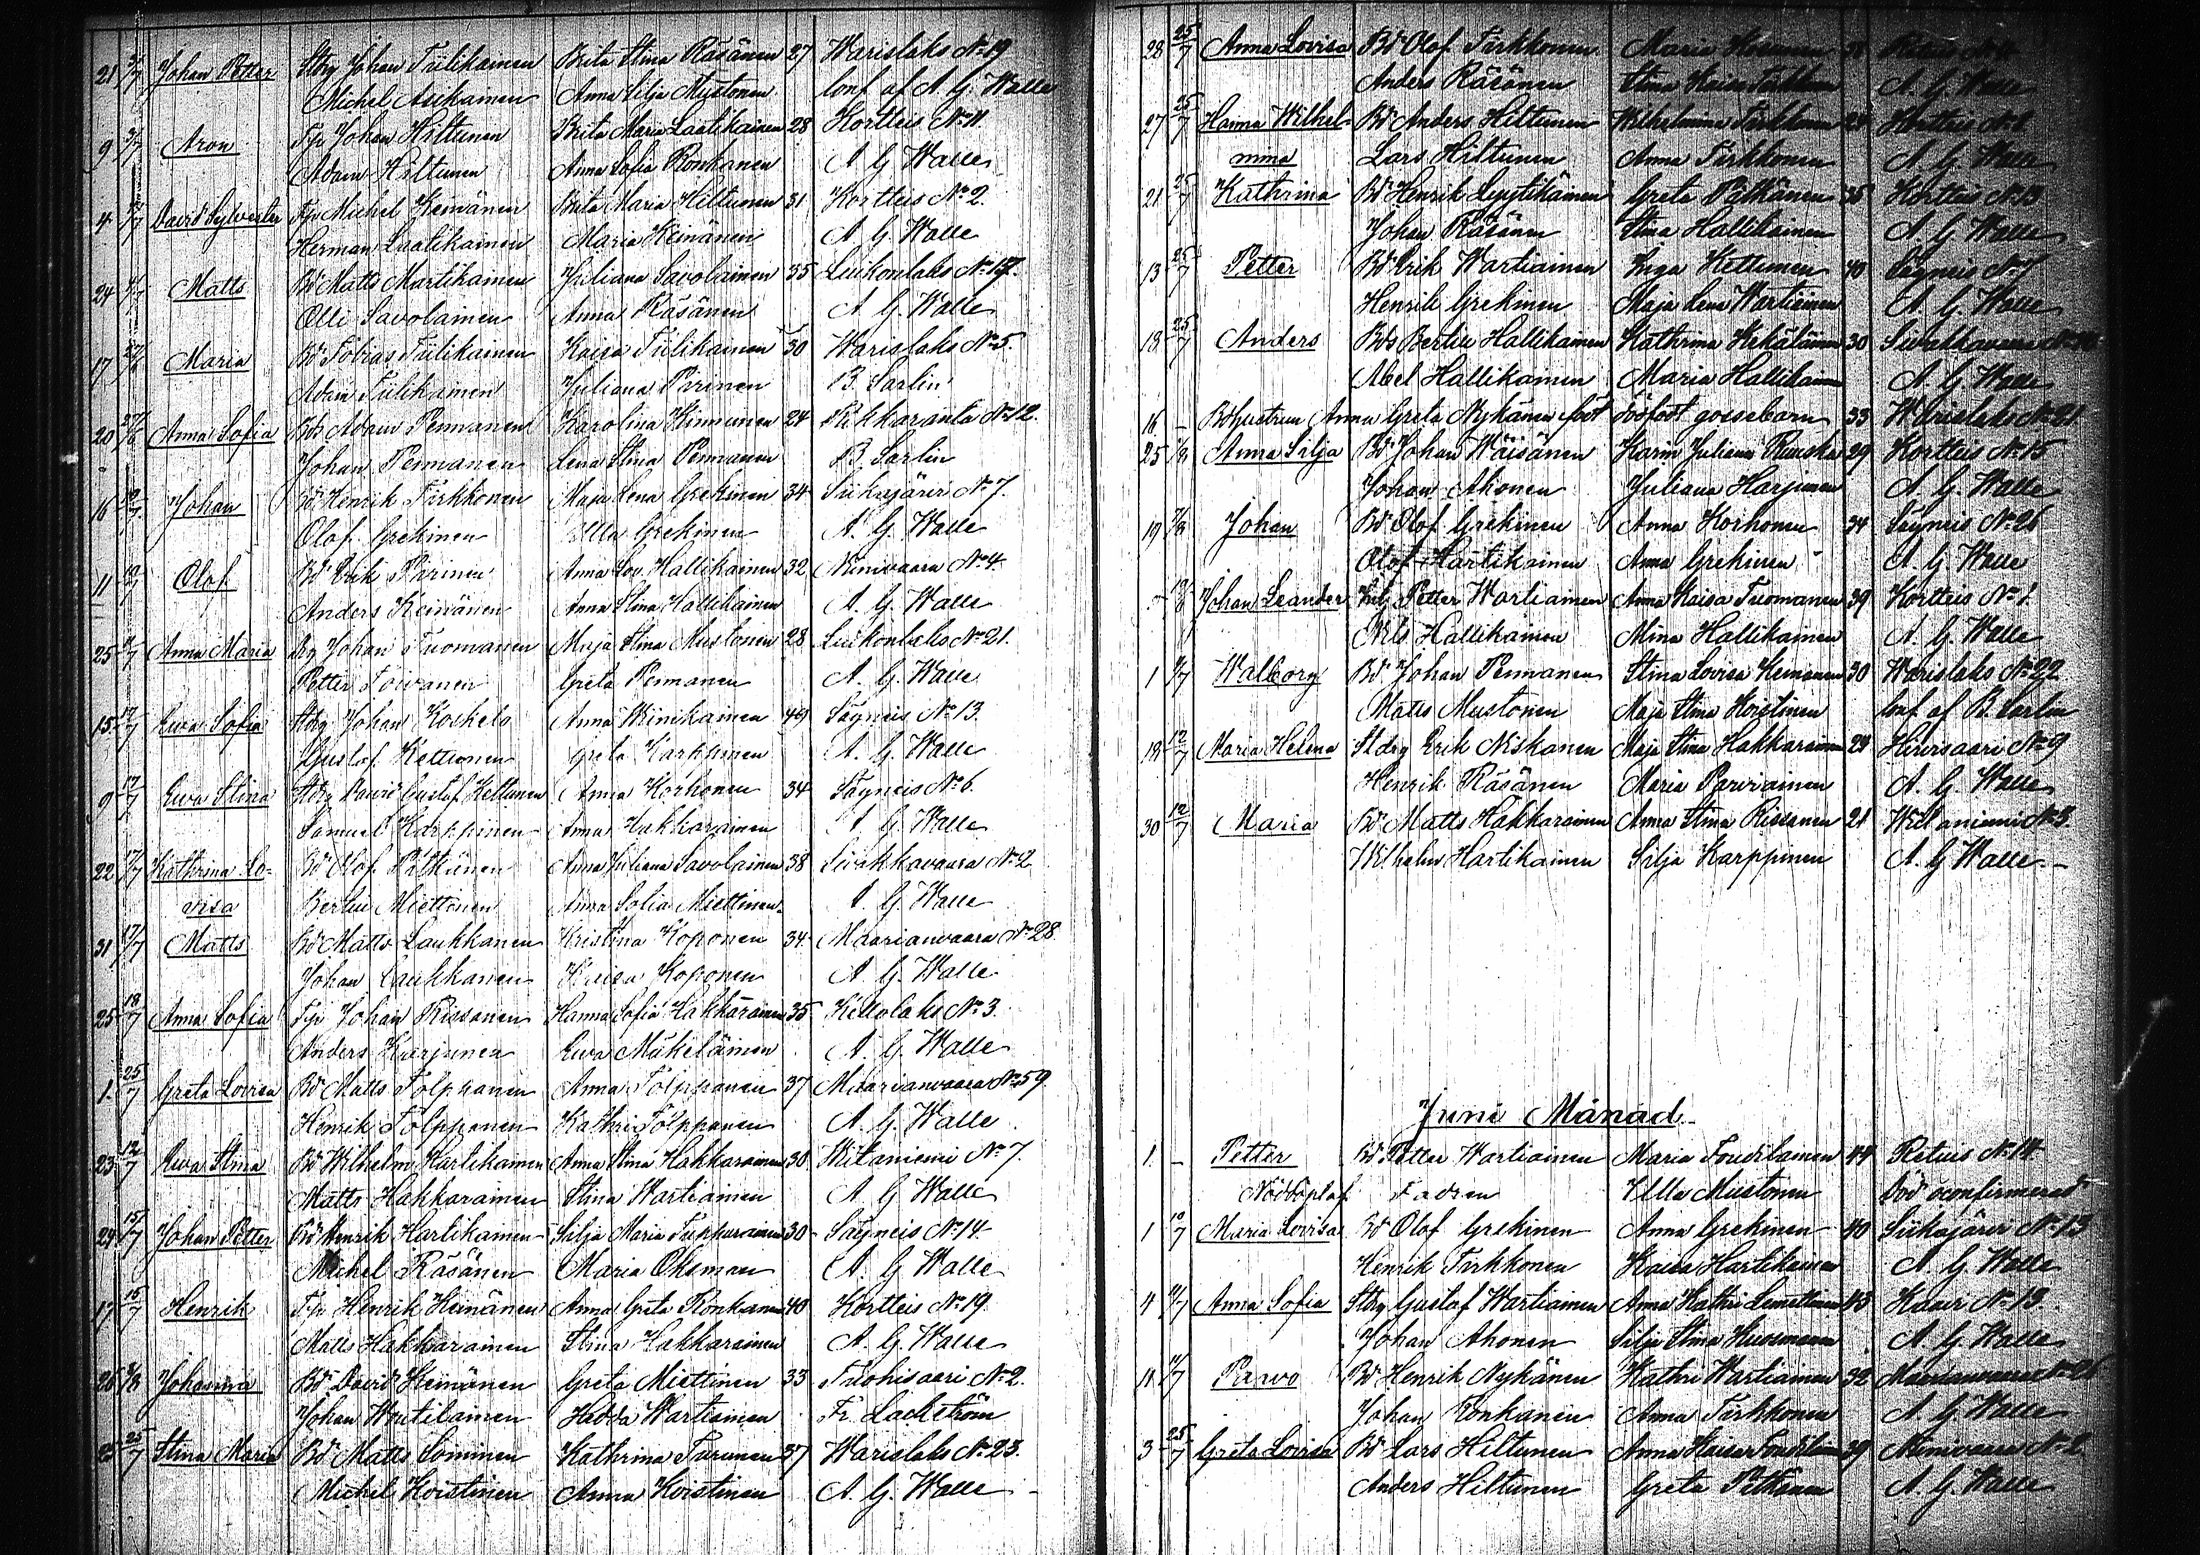 21 3/7 Johan Petter Stdrg Johan Tiilikainen Brita Stina Räsänen 27 Warislaks No 19
Michel Asikainen Anna Silja Mustonen conf af A. G. Walle
9 3/7 Aron Tjr Johan Hiltunen Brita Maria Laatikainen 28 Kortteis No 11.
Adam Hiltunen Anna Sofia Ronkanen A. G. Walle
4 David Sylvester Tjr Michel Keinänen Brita Maria Hiltunen 31 Kortteis No 2.
Herman Laatikainen Maria Keinänen A. G. Walle
24 Matts Bd Matts Martikainen Juliana Savolainen 35 Luikonlaks No 17.
Olli Savolainen Anna Räsänen A. G. Walle
17 27/6 Maria Bd Tobias Tiilikainen Kaisa Tiilikainen 30 Warislaks No 5.
Adam Tiilikainen Juliana Pirinen B. Sarlin
20 27/6 Anna Sofia Bds Adam Pennanen Karolina Kinnunen 24 Rikkaranta No 12.
Johan Pennanen Lena Stina Pennanen B. Sarlin
16 10/7 Johan Bd Henrik Tirkkonen Maja Lena Grekinen 34 Siikajärvi No 7.
Olof Grekinen Ulla Grekinen A. G. Walle
11 10/7 Olof Bd Erik Pirinen Anna Lov. Hallikainen 32 Niinivaara No 4.
Anders Keinänen Anna Stina Hallikainen A. G. Walle
25 Anna Maria Drg Johan Tuomanen Maja Stina Mustonen 28 Luikonlaks No 21.
Petter Toivanen Greta Pennanen A. G. Walle
15 17/7 Ewa Sofia Stdrg Johan Koskelo Anna Miinikainen 49 Säyneis No 13.
Gustof Kettunen Greta Karhunen A. G. Walle
9 17/7 Ewa Stina Stdrg David Gustaf Kettunen Anna Korhonen 34 Säyneis No 6.
Samuel Karppinen Anna Hakkarainen A. G. Walle
22 17/7 Kathrina Lo- Bd Olof Pitkänen Anna Juliana Savolainen 38 Sivakkavaara No 2
visa Bertil Miettinen Anna Sofia Miettinen A. G. Walle
31 17/7 Matts Bd Matts Laukkanen Kristina Koponen 34 Maarianvaara No 28.
Johan Laukkanen Kaisa Koponen A. G. Walle
25 18/7 Anna Sofia Tjr Johan Rissanen Hanna Sofia Hakkarainen 35 Kettolaks No 3.
Anders Karjunen Ewa Mäkeläinen A. G. Walle
1 25/7 Greta Lovisa Bd Matts Tolppanen Anna Tolppanen 37 Maarianvaara No 59
Henrik Tolppanen Kathri Tolppanen A. G. Walle
23 12/7 Ewa Stina Bd Wilhelm Hartikainen Anna Stina Hakkarainen 30 Witaniemi No 7.
Matts Hakkarainen Stina Wartiainen A. G. Walle
29 15/7 Johan Petter Bd Henrik Hartikainen Silja Maria Tuppurainen 30 Säyneis No 14
Michel Räsänen Maria Oksman A. G. Walle
17 15/7 Henrik Tjr Henrik Keinänen Anna Greta Ronkanen 40 Kortteis No 19.
Matts Hakkarainen Stina Hakkarainen A. G. Walle
26 Johanna Bd David Keinänen Greta Miettinen 33 Talohisaari No 2.
Johan Woutilainen Hedda Wartiainen Fr. Lackström
25 25/7 Stina Maria Bd Matts Sominen Kathrina Turunen 37 Warislaks No 23.
Michel Hoistinen Anna Hoistinen A. G. Walle
28 25/7 Anna Lovisa Bd Olof Tirkkonen Maria
Anders Räsänen Stina Kaisa A. G. Walle
27 25/7 Hanna Wilhel- Bd Anders Hiltunen Wilhelmina Kortteis No
mina Lars Hiltunen Anna Tirkkonen A. G. Walle
21 25/7 Kathrina Bd Henrik Lyytikäinen Greta Pitkänen 35 Kortteis No 13
Johan Räsänen Stina Hallikainen A. G. Walle
13 25/7 Petter Bd Erik Wartiainen Inga Kettunen 40 Säyneis No 7
Henrik Grekinen Maja Lena Wartiainen A. G. Walle
18 25/7 Anders Bds Bertil Hallikainen Kathrina Kekäläinen 30 Sivakkavaara
Abel Hallikainen Maria Hallikainen A. G. Walle
16 – Bdhustrun Anna Greta Nykänen född dödfödt gossebarn 33 Warislaks No 21
25 1/8 Anna Silja Bd Johan Wäisänen Karin Juliana Ruuska 29 Kortteis No 15
Johan Ahonen Juliana Harjunen A. G. Walle
19 7/8 Johan Bd Olof Grekinen Anna Korhonen 34 Säyneis No 26
Olof Hartikainen Anna Grekinen A. G. Walle
Johan Leander Petter Wartiainen Anna Kaisa Tuomanen 39 Kortteis No 1.
Nils Hallikainen Mina Hallikainen A. G. Walle
1 Walborg Bd Johan Pennanen Stina Lovisa Keinanen 30 Warislaks No 22
Matts Mustonen Maja Stina Hoistinen conf af B. Sarlin
18 12/7 Maria Helena Stdrg Erik Niskanen Maja Stina Hakkarainen 29 Hirvisaari No 9
Henrik Räsänen Maria Parviainen A. G. Walle
30 12/7 Maria Bd Matts Hakkarainen Anna Stina Rissanen 21 Witaniemi No 3.
Wilhelm Hartikainen Silja Karppinen A. G. Walle
Juni Månad
1 – Petter Bd Petter Wartiainen Maria Foudilainen 44 Retuis No 14
Nöddöpt af Fadren Ulla Mustonen Död oconfirmerad
1 10/7 Maria Lovisa Bd Olof Grekinen Anna Grekinen 40 Siikajärvi No 13
Henrik Tirkkonen Kaisa Hartikainen A. G. Walle
4 11/7 Anna Sofia Stdrg Gustaf Wartiainen Anna Kathri 43 Kaavi No 13
Johan Ahonen Silja Stina Kuosmanen A. G. Walle
11 11/7 Paavo Bd Henrik Nykänen Kathri Wartiainen 32
Johan Ronkanen Anna Tirkkonen A. G. Walle
3 25/7 Greta Lovisa Bd Lars Hiltunen Anna Kaisa 39 Niinivaara No 2
Anders Hiltunen Greta Pitkänen A. G. Walle